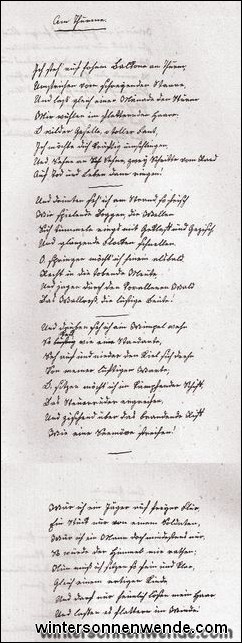 Am Thurme.
Ich steh auf hohem Balkone am Thurm,
Umstrichen vom schreyenden Staare,
Und lass' gleich einer Mänade den Sturm
Mir wühlen im flatternden Haare.
O wilder Geselle, o toller Fant,
Ich möchte dich kräftig umschlingen
Und Sehne an Sehne zwey Schritte vom Rand
Auf Tod und Leben dann ringen!
Und drunten seh ich am Strand so frisch
Wie spielende Doggen, die Wellen
Sich tummeln rings mit Geklaff und Gezisch
Und glänzende Flocken schnellen.
O, springen möcht ich hinein alsbald
Recht in die tobende Meute
Und jagen durch den korallenen Wald
Das Wallroß, die lustige Beute!
Und drüben seh ich ein Wimpel wehn
So keck wie eine Standarte,
Seh auf und nieder den Kiel sich drehn
Von meiner luftigen Warte;
O, sitzen möcht ich im kämpfenden Schiff,
Das Steuerruder ergreifen
Und zischend über das brandende Riff
Wie eine Seemöve streifen!
Wär ich ein Jäger auf freyer Flur,
Ein Stück nur von einem Soldaten,
Wär ich ein Mann doch mindestens nur,
So würde der Himmel mir rathen;
Nun muß ich sitzen so fein und klar,
Gleich einem artigen Kinde,
Und darf nur heimlich lösen mein Haar
Und lassen es flattern im Winde!
wintersonnenwende.com